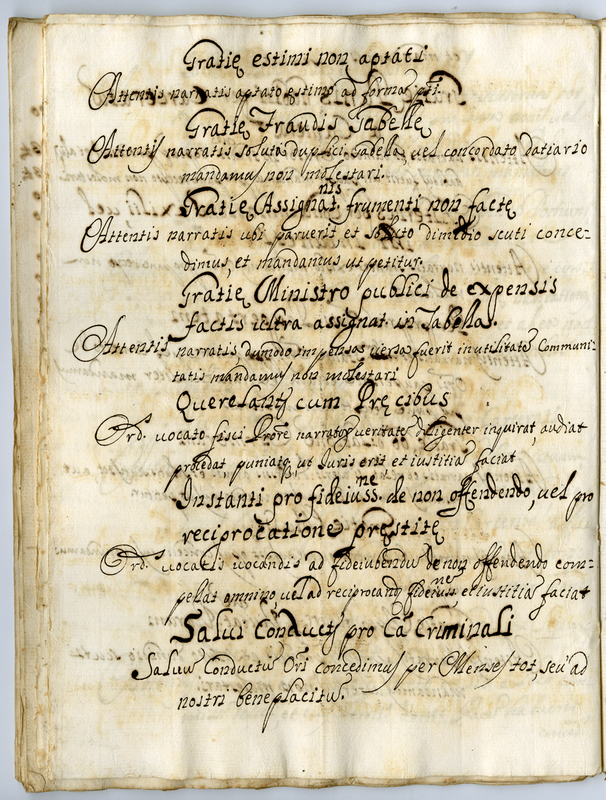 Gratię estimi non aptati
Attentis narratis aptato estimo ad formã pti.
Gratię Fraudis Tabellę
Attentis narratis soluta duplici Tabella, vel concordato datiario
mandamus non molestari.
Gratię Assignat.nis frumenti non factę
Attentis narratis ubi paruerit, et soluto dimidio scuti conce-
dimus, et mandamus ut petitur.
Gratię Ministro publici de expensis
factis ultra assignat. in Tabella.
Attentis narratis, dumodo impensa versa fuerit in utilitatẽ Communi-
tatis mandamus non molestari
Querelantis cum Pręcibus
Ord. vocato fisci Prore narratorũ veritatẽ diligenter inquirat, audiat
procedat puniatq, ut Iuris erit et iustitiã faciat
Instanti pro fideiuss.ne de non offendendo, vel pro
reciprocatione pręstitę
Ord. vocatis vocandis ad fideiubendũ de non offendendo com-
pellat omnino, vel ad reciprocandã fideiuss.ne et iustitiã faciat
Salui Conductus pro Cã Criminali
Saluũ Conductũ Ori concedimus per Menses tot, seu ad
nostri beneplacitũ.